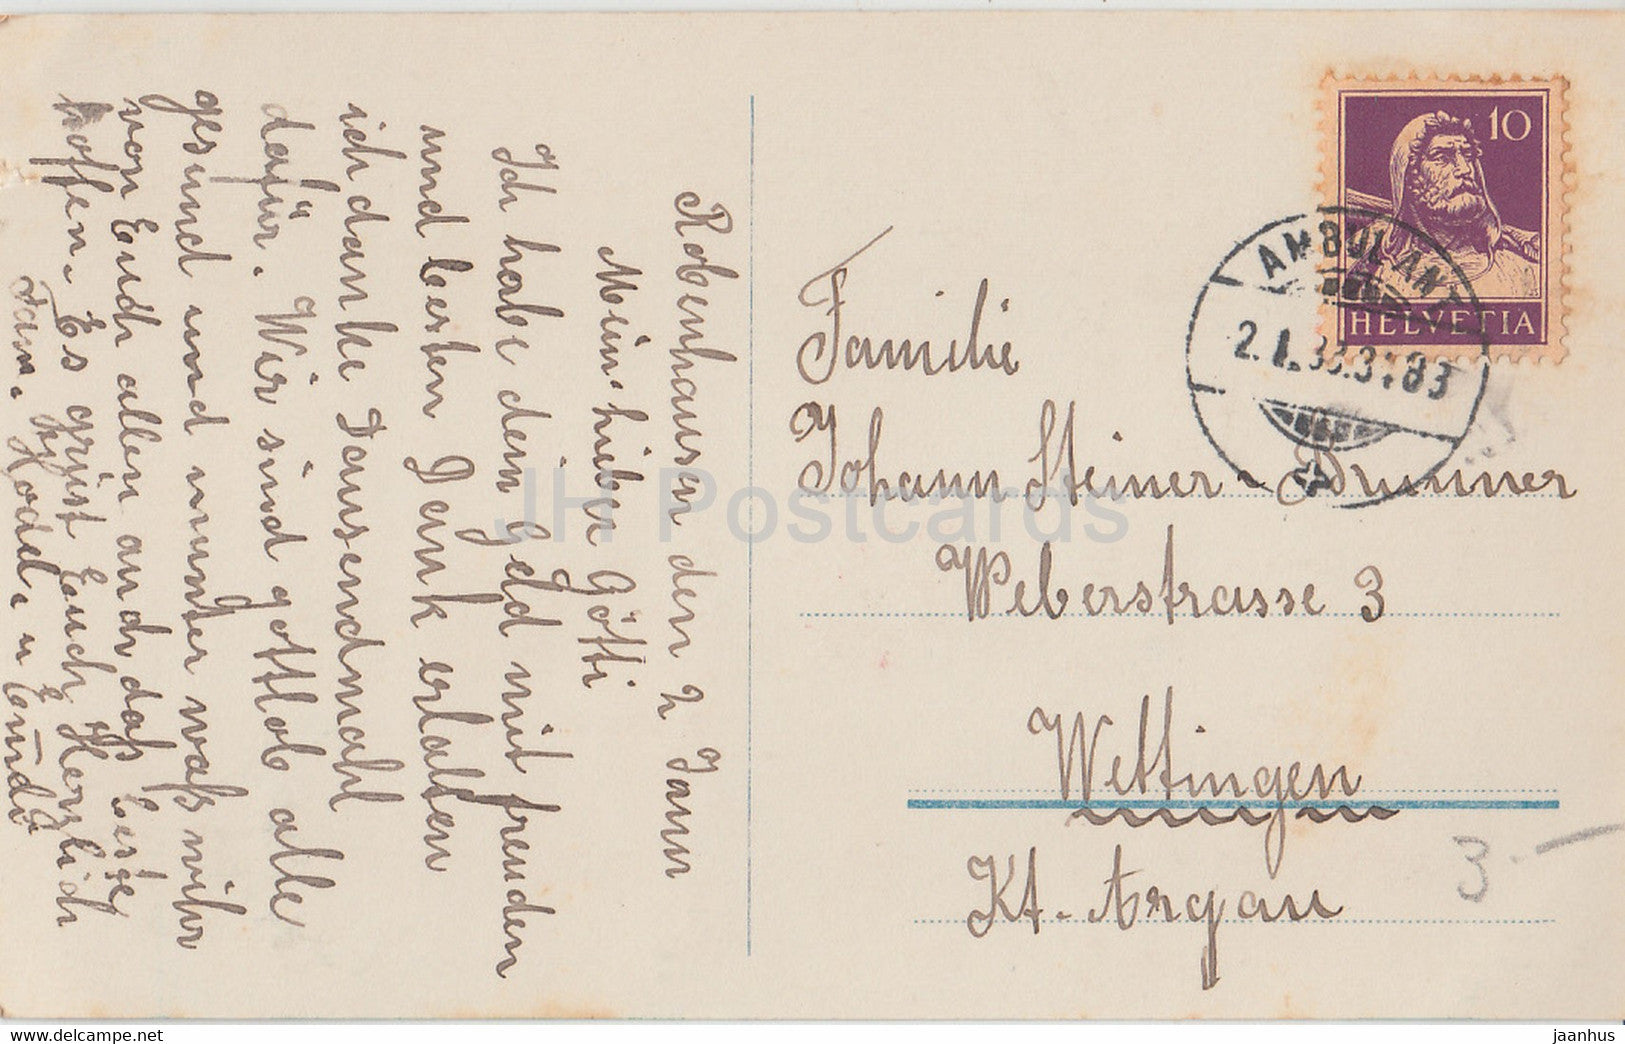 Robenhausen den 2 Jann
Mein lieber Götti
Ich habe dein Geld mit freuden
und besten Dank erlalten
ich danke Dausendmahl
dafür. Wir sind gottlob alle
gesund und munter waß wihr
von Euch allen auch daß beste
hoffen. Es grüst Euch Herzlich
Fam. Hodel u
10
HELVETIA
AMBULANT
2.1.33.3183
Familie
Johann Steiner-Brunner
Weberstrasse 3
Wettingen
Kt. Argau
3.-
JH Postcards
www.delcampe.net
jaanhus